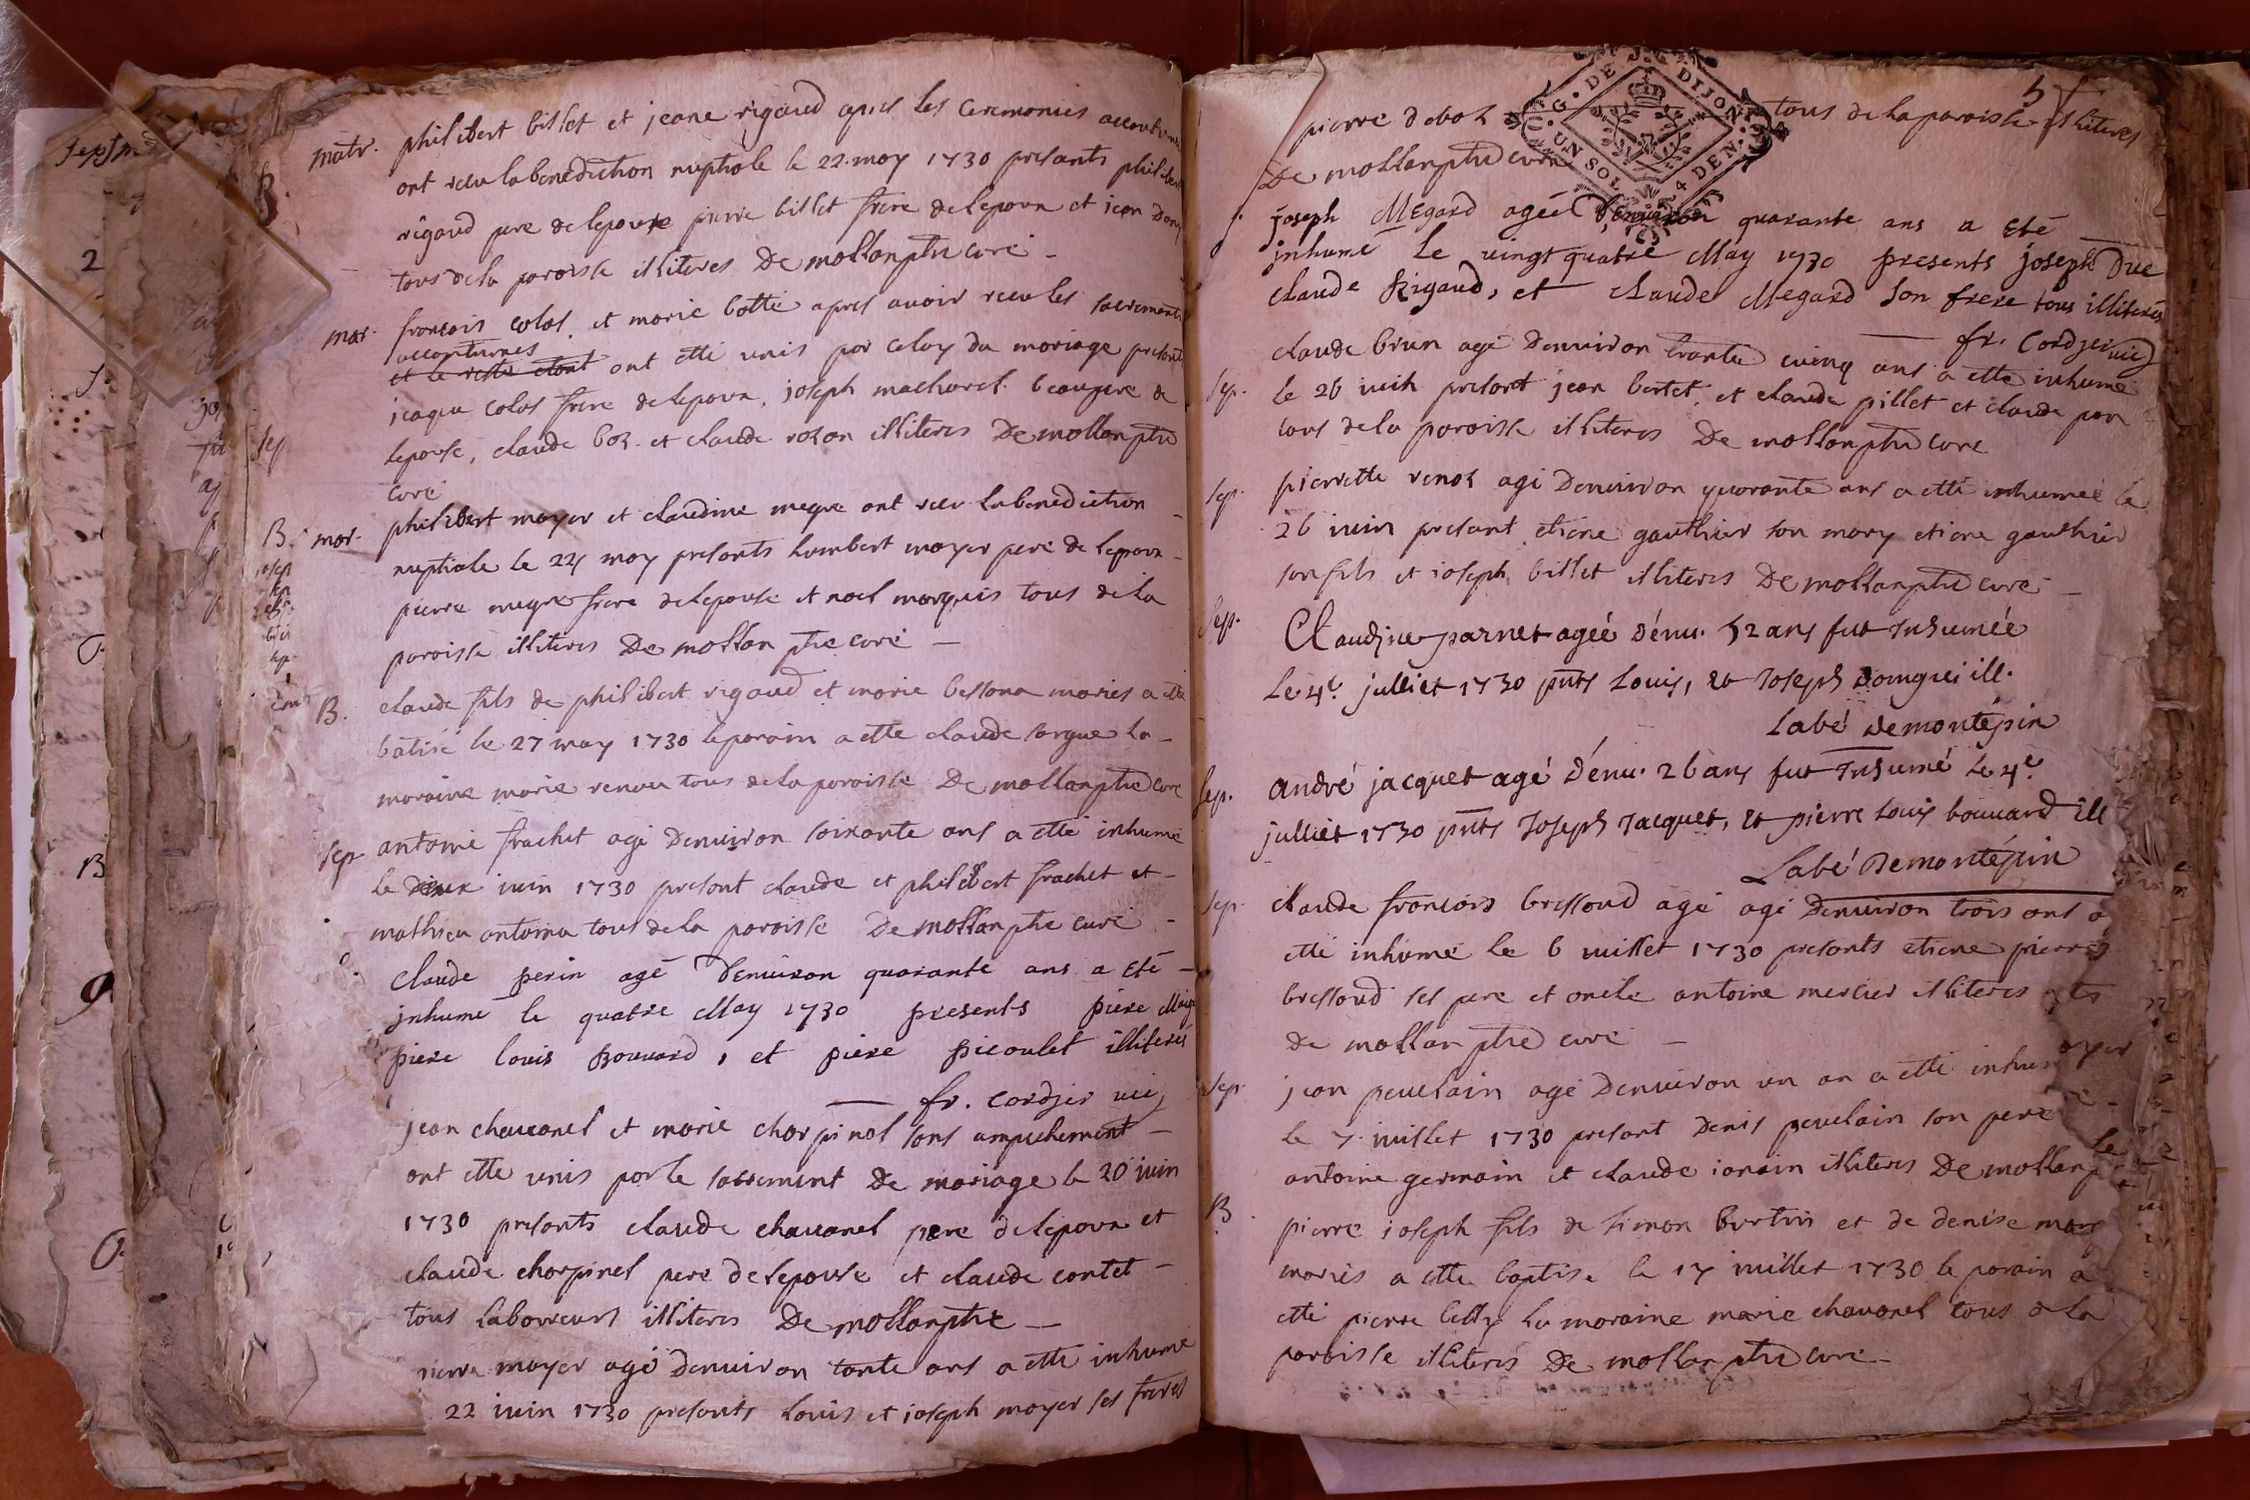 matr. philibert billet et jeane rigaud apres les ceremonies accoutumes
ont receu la benediction nuptiale le 22 may 1730 presants philibert
rigaud pere de lepouse pierre billet frere de lepoux et jean
tous de la paroisse illiteres De mollan ptre curé
mar. francois colas et marie botté apres avoir receu les sacrements
accoutumes
et le reste etant ont etté unis par celuy du mariage presants
jcaque colas frere de lepoux, joseph machurel beaupere de
lepouse, claude boz et claude rozan illiteres De mollan ptre
curé
mar. philibert mayer et claudine megre ont receu la benediction
nuptiale le 24 may presants humbert mayer pere de lepoux
pierre megre frere de lepouse et noel marquis tous de la
paroisse illiteres De mollan ptre curé
B. claude fils de philibert rigaud et marie bessona maries a etté
batisé le 27 may 1730 le parain a etté claude sorgue la
maraine marie renau tous de la paroisse De mollan ptre curé
sep. antoine frachet agé denviron soixante ans a etté inhumé
le deux juin 1730 presant claude et philibert frachet et
mathieu antoina tous de la paroisse De mollan ptre curé
claude perin agé denviron quarante ans a eté
jnhumé le quatre May 1730 presents piere
piere louis Bouvard, et piere picoulet illiterés
fr. cordier vic
jean chavanel et marie charpinel sans ampechement
ont etté unis par le sacrement De mariage le 20 juin
1730 presants claude chavanel pere de lepoux et
claude charpinel pere de lepouse et claude contet
tous laboureurs illiteres De mollan ptre
pierre mayer agé denviron tante ans a etté inhumé
22 juin 1730 presants louis et joseph mayer ses freres
5
pierre deboz tous de la paroisse illiteres
De mollan ptre curé
G. DE DIJON
UN SOL 4 DEN.
joseph Megard ageé Denviron quarante ans a eté
jnhumé le vingt quatre May 1730 presents joseph Due
claude Rigaud, et claude Megard son frere tous illiterés
fr. Cordier vic
sep. claude brun agé denviron trante cuinq ans a etté inhumé
le 26 juin presant jean bertet, et claude pillet et claude
tous de la paroisse illiteres De mollan ptre curé
sep. pierrette renoz agé denviron quarante ans a etté inhumeé le
26 juin presant etiene gauthier son mary etiene gauthier
son fils et joseph billet illiteres De mollan ptre curé
Sep. Claudine parnet ageé d'enu. 52 ans fut Inhumeé
le 4e. julliet 1730 pnts Louis, et Joseph ill.
Labé demontépin
sep. André jacquet agé d'enu. 26 ans fut Inhumé le 4e.
julliet 1730 pnts Joseph Jacquet, et pierre Louis bouuard ill
Labé Demontépin
sep. claude francois bressoud agé agé denviron trois ans a
etté inhumé le 6 juillet 1730 presants etiene pierre
bressoud ses pere et oncle antoine mercier illiteres
de mollan ptre curé
sep. jean peuelain agé denviron un an a etté inhumé
le 7 juillet 1730 presant denis peuelain son pere
antoine germain et claude janain illiteres De mollan
B. pierre joseph fils de simon burtin et de denise
mariés a etté baptisé le 17 juillet 1730 le parain a
etté pierre la maraine marie chavanel tous de la
paroisse illiteres De mollan ptre curé